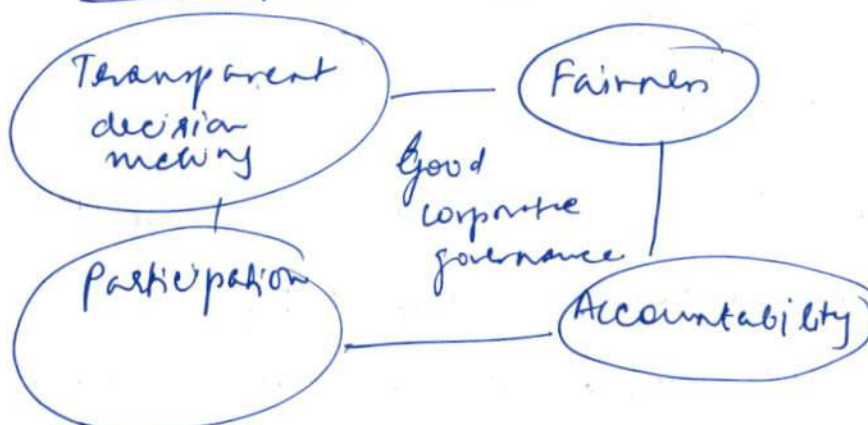 Transparent
decision
making
Fairness
Good
corporate
governance
Participation
Accountability